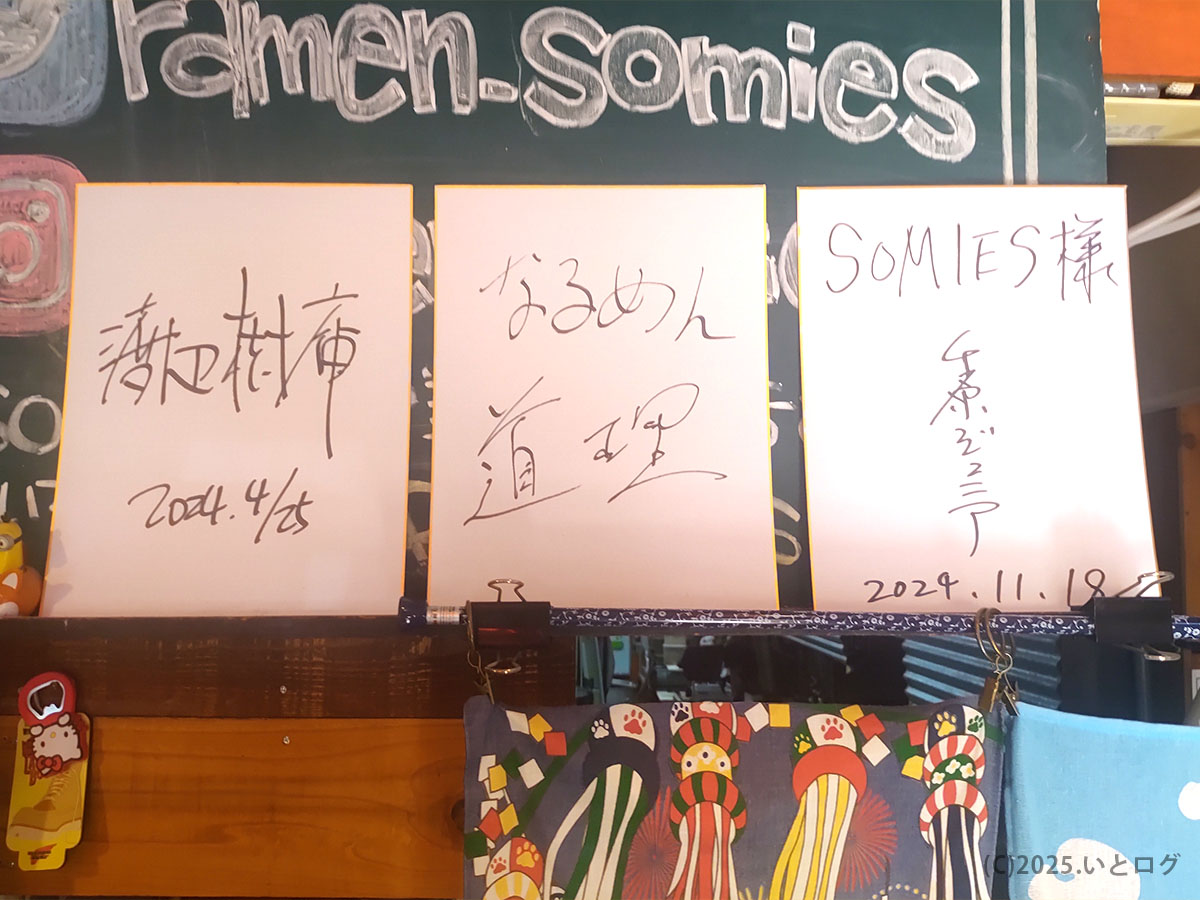 ramen-somies
渡辺樹庫
2024.4/25
なるめん
道理
SOMIES様
千原ジュニア
2024.11.18
(C)2025.いとログ